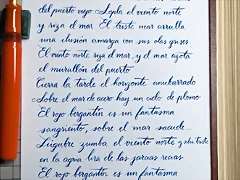 del puerto viejo. Sopla el viento norte
y riza el mar. El triste mar arrulla
una ilusión amarga con sus olas grises.
El viento norte riza el mar, y el mar azota
el murallón del puerto.
Cierra la tarde el horizonte anubarrado
Sobre el mar de acero hay un cielo de plomo
El rojo bergantín es un fantasma
sangriento, sobre el mar, sacude...
Lúgubre zumba el viento norte y silba triste
en la agria lira de las jarcias recias
El rojo bergantín es un fantasma